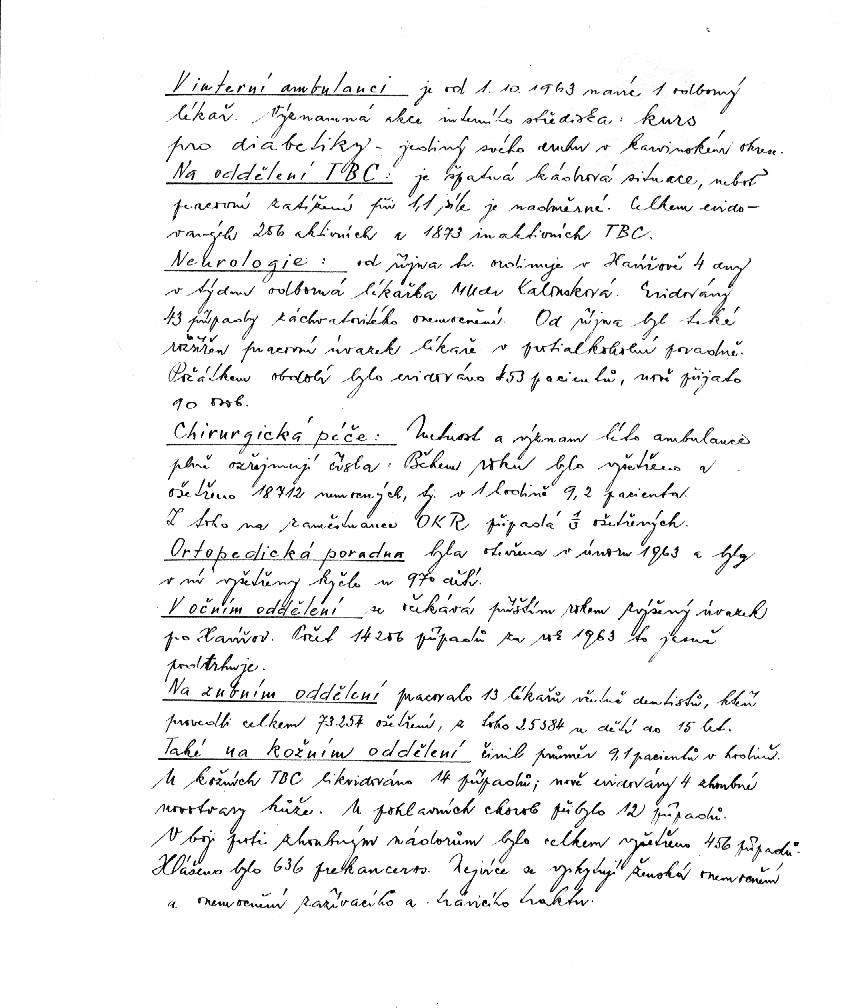 V interní ambulanci je od 1. 10. 1963 navíc 1 odborný
lékař. Významná akce interního střediska: kurs
pro diabetiky - jediný svého druhu v karvinském okrese.
Na oddělení TBC: je špatná kádrová situace, neboť
pracovní zatížení při 1,1 síle je nadměrné. Celkem evido-
vaných 256 aktivních a 1873 inaktivních TBC.
Neurologie: od října t.r. ordinuje v Havířově 4 dny
v týdnu odborná lékařka MUDr Kalonsková. Evidovány
43 případy záchvatovitého onemocnění. Od října byl také
rozšířen pracovní úvazek lékaře v protialkoholní poradně.
Počátkem období bylo evidováno 453 pacientů, nově přijato
90 osob.
Chirurgická péče: Nutnost a význam této ambulance
plně ozřejmují čísla: Během roku bylo vyšetřeno a
ošetřeno 18712 nemocných, tj. v 1 hodině 9,2 pacienta.
Z toho na zaměstnance OKR připadá ošetřených.
Ortopedická poradna byla otevřena v únoru 1963 a byly
v ní vyšetřeny kyčle u 970 dětí.
V očním oddělení se očekává příštím rokem zvýšený úvazek
pro Havířov. Počet 14206 případů za rok 1963 to jasně
podtrhuje.
Na zubním oddělení pracovalo 13 lékařů včetně dentistů, kteří
provedli celkem 73.254 ošetření, z toho 25384 u dětí do 15 let.
Také na kožním oddělení činil průměr 9,1 pacientů v hodině.
U kožních TBC likvidováno 14 případů; nově evidovány 4 zhoubné
novotvary kůže. U pohlavních chorob přibylo 12 případů.
V boji proti zhoubným nádorům bylo celkem vyšetřeno 456 případů.
Hlášeno bylo 636 prekanceros. Nejvíce se vyskytují ženská onemocnění
a onemocnění zažívacího a trávicího traktu.